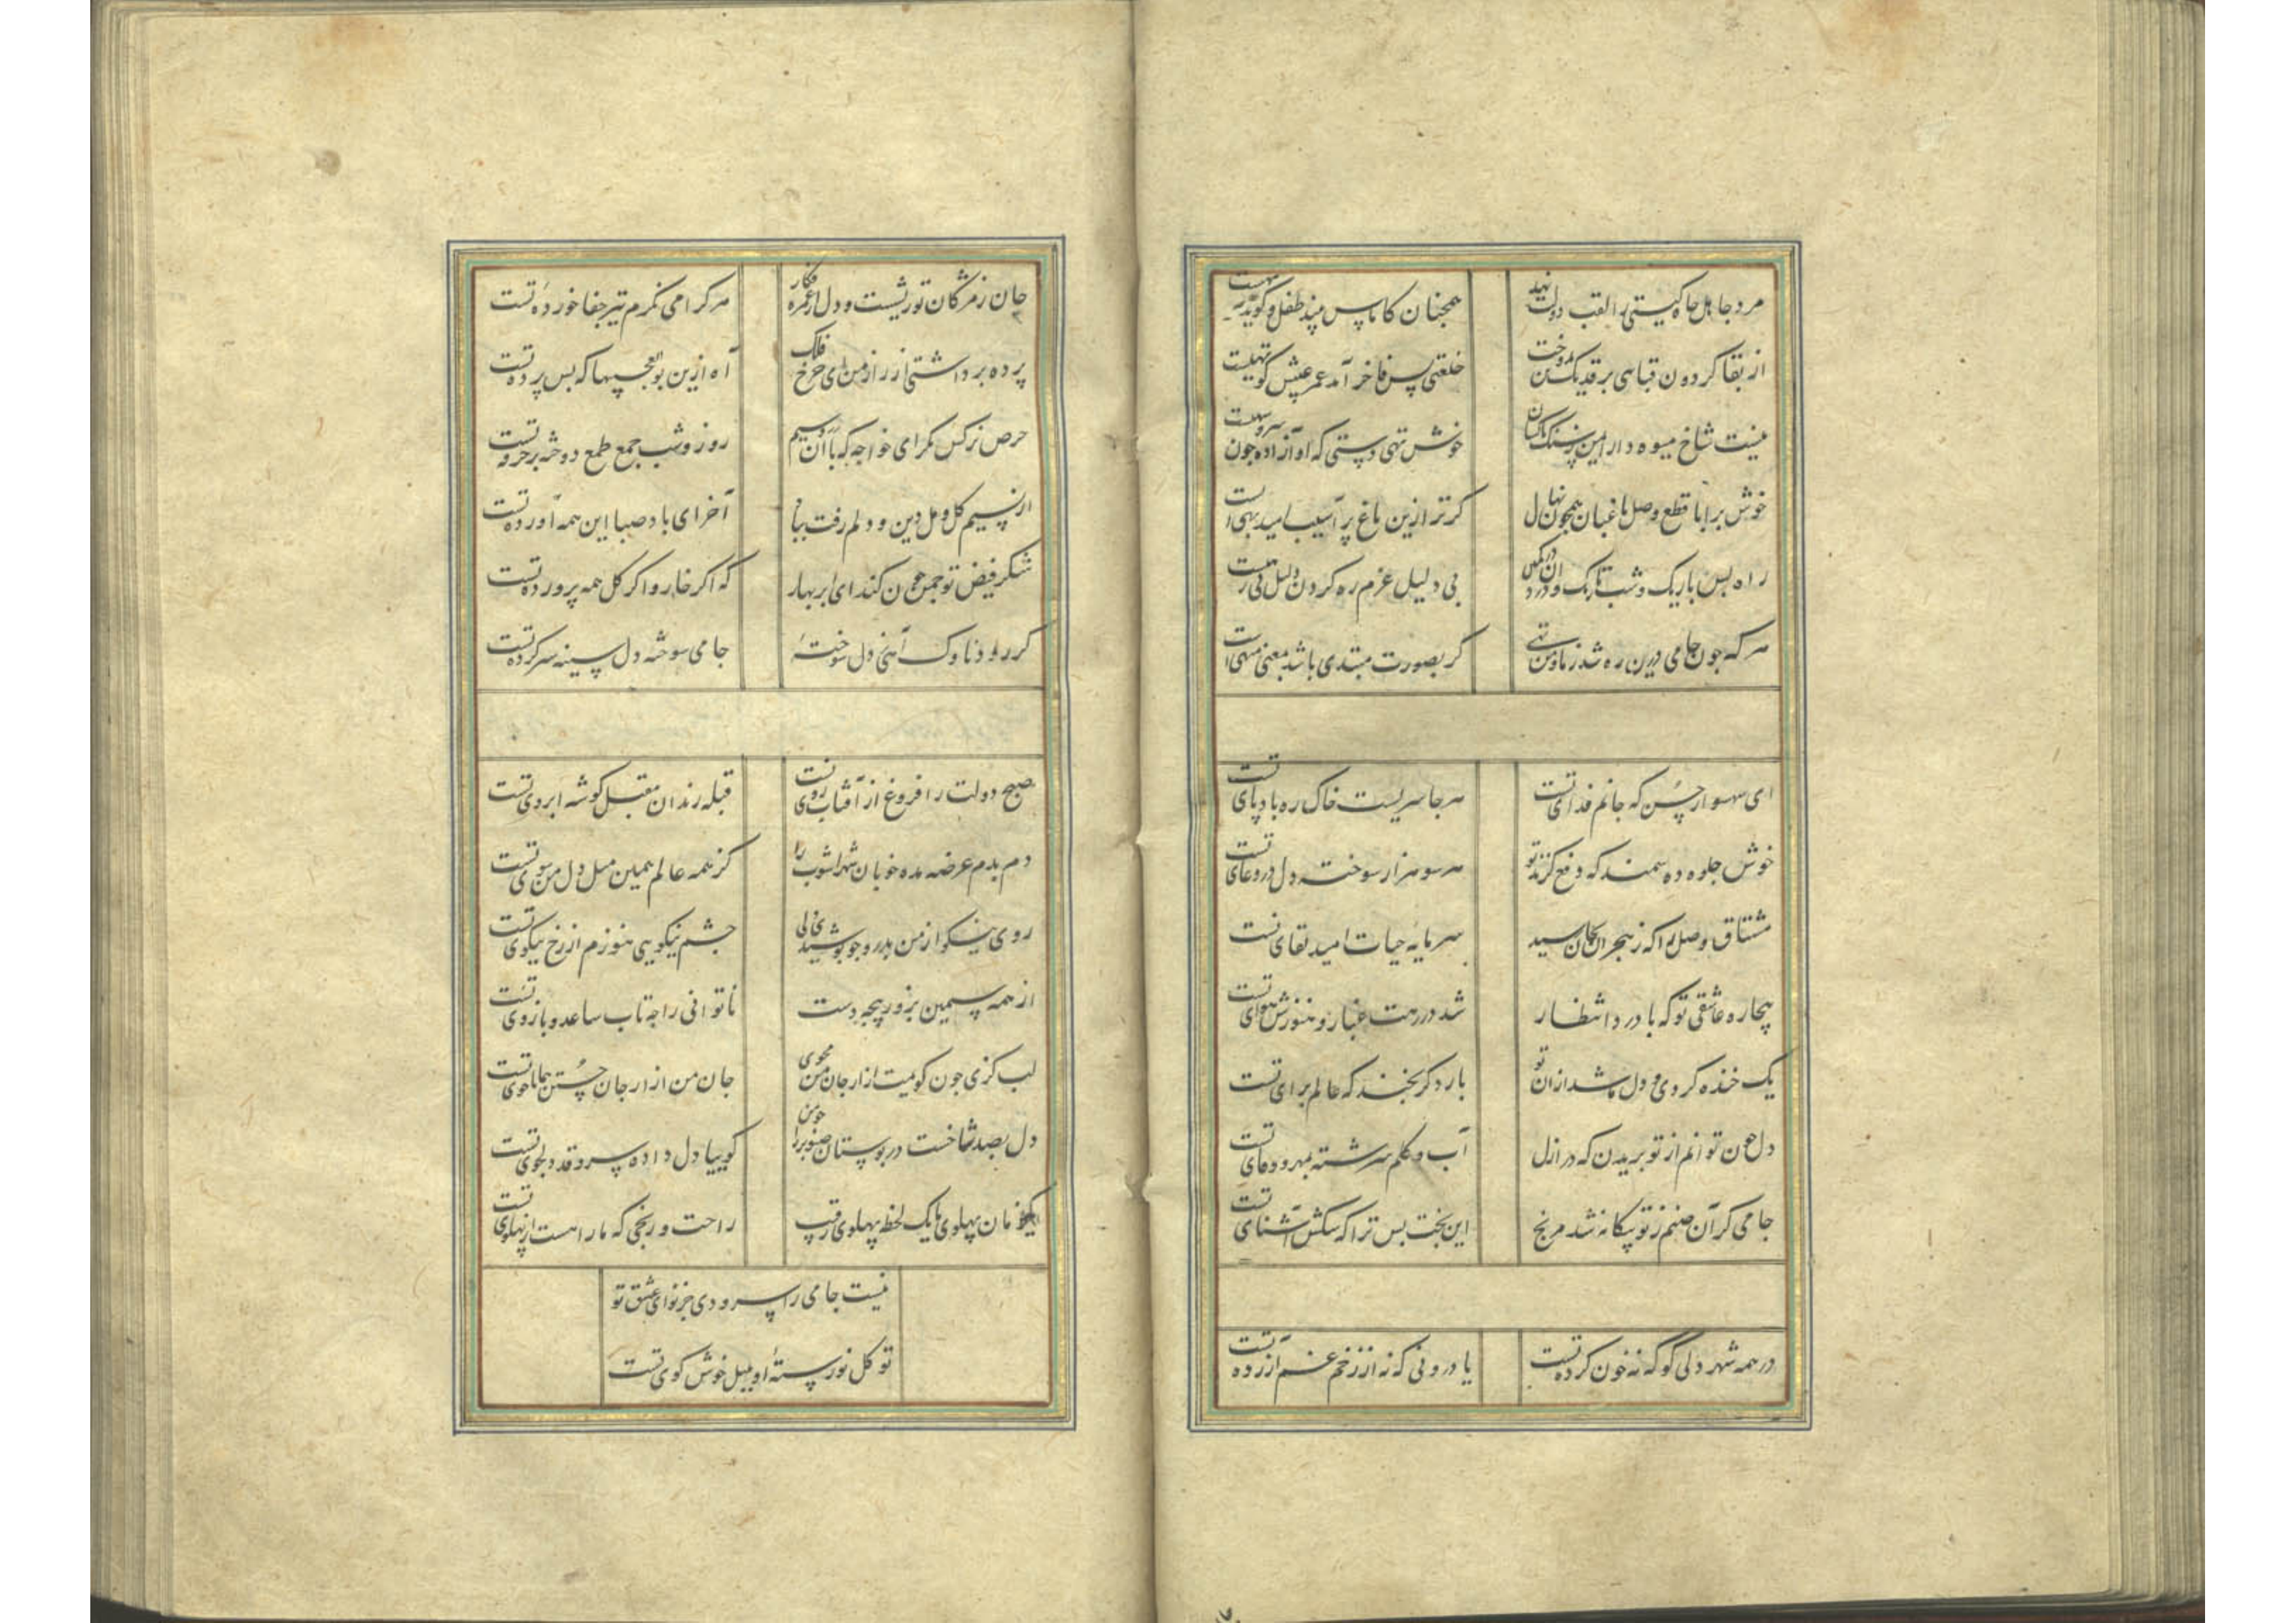 مرد جاهل جاه گیتی را لقب دولت نهد
همچنان کاماس بیند طفل و گوید فربهیست
از بقا گردون قباهی بر قد یک تن ندوخت
خلعتی بس فاخر آمد عمر عیبش کوتهیست
نیست شاخ میوه دار ایمن ز سنگ ناکسان
خوش تهی دستی که او آزاده جون سرو سهیست
خوش برا با قطع و وصل باغبان همچون نهال
کر ترا زین باغ پر آسیب امید بهی است
راه بس باریک و شب تاریک و دزدان در کمین
بی دلیل عزم ره کردن دلیل ابلهیست
هر که جون جامی درین ره شد ز ما و من تهی
کر بصورت مبتدی باشد بمعنی منتهی است
ای شهسوار حسن که جانم فدای تست
هر جا سریست خاک ره بادپای تست
خوش جلوه ده سمند که دفع گزند تو
هر سو هزار سوخته دل در دعای تست
مشتاق وصل را که ز هجران بجان رسید
سرمایه حیات امید لقای تست
بیچاره عاشقی تو که با درد انتظار
شد در رهت غبار و هنوزش هوای تست
یک خنده کردی و دل ما شد از ان تو
بار دگر بخند که عالم برای تست
دل جون توانم از تو بریدن که در ازل
آب و کلم سرشته بمهر و وفای تست
جامی کر آن صنم ز تو بیکانه شد مرنج
این بخت بس ترا که سکش آشنای تست
در همه شهر دلی کو که نه خون کرده تست
یا درونی که نه از زخم غم آزرده تست
جان ز مژکان تو ریشست و دل از غمزه فکار
هر کرا می نکرم تیر جفا خورده تست
پرده برداشتی از راز من ای جرخ فلک
آه ازین بوالعجبیها که پس پرده تست
حرص نرکس نکر ای خواجه که با آن زر و سیم
روز و شب جمع طمع دوخته بر خرده تست
از نسیم کل و مل دین و دلم رفت بباد
آخر ای باد صبا این همه آورده تست
شکر فیض تو جمن جون کند ای ابر بهار
که اکر خار و اکر کل همه پرورده تست
کر رود ناوک آهی ز دل سوختهٔ
جامی سوخته دل سینه سپر کرده تست
صبح دولت را فروغ از آفتاب روی تست
قبله رندان مقبل کوشه ابروی تست
دم بدم عرضه مده خوبان شهراشوب را
کز همه عالم همین میل دل من سوی تست
روی نیکو از من بدرو جو پوشیدی ولی
چشم نیکویی هنوزم از رخ نیکوی تست
از همه سیمین بران بزور پنجه دست
ناتوانی را جه تاب ساعد و بازوی تست
لب کزی جون کویمت ازار جان من مجوی
جان من ازار جان جستن همانا خوی تست
دل بصد شاخست در بوستان صنوبر را جو من
کوییا دل داده سرو قد دلجوی تست
یکزمان پهلوی ما یک لحظه پهلوی رقیب
راحت و رنجی که ما را هست از پهلوی تست
نیست جامی را سرودی جز نوای عشق تو
تو کل نورستهٔ او بلبل خوش کوی تست